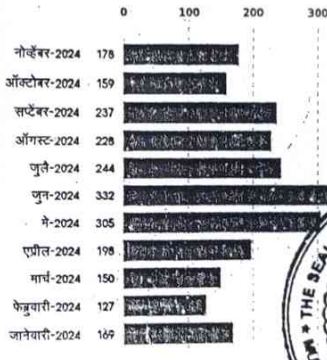 0 100 200 300
नोव्हेंबर-2024 178
ऑक्टोबर-2024 159
सप्टेंबर-2024 237
ऑगस्ट-2024 228
जुलै-2024 244
जुन-2024 332
मे-2024 305
एप्रील-2024 198
मार्च-2024 150
फेब्रुवारी-2024 127
जानेवारी-2024 169
* THE SEA